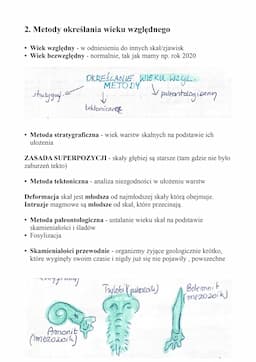 2. Metody określania wieku względnego
• Wiek względny - w odniesieniu do innych skał/zjawisk
• Wiek bezwzględny - normalnie, tak jak mamy np. rok 2020
OKREŚLANIE WIEKU WZGL.
METODY
tektoniczne
paleontologiczny
• Metoda stratygraficzna - wiek warstw skalnych na podstawie ich
ułożenia
ZASADA SUPERPOZYCJI - skały głębiej są starsze (tam gdzie nie było
zaburzeń tekto)
• Metoda tektoniczna - analiza niezgodności w ułożeniu warstw
Deformacja skał jest młodsza od najmłodszej skały którą obejmuje.
Intruzje magmowe są młodsze od skał, które przecinają
• Metoda paleontologiczna - ustalanie wieku skał na podstawie
skamieniałości i śladów
• Fosylizacja
• Skamieniałości przewodnie - organizmy żyjące geologicznie krótko,
które wyginęły swoim czasie i nigdy już się nie pojawiły , powszechne
Trylobit (paleozoik)
Belemnit
(mezozoik)
Amonit
(mezozoik)